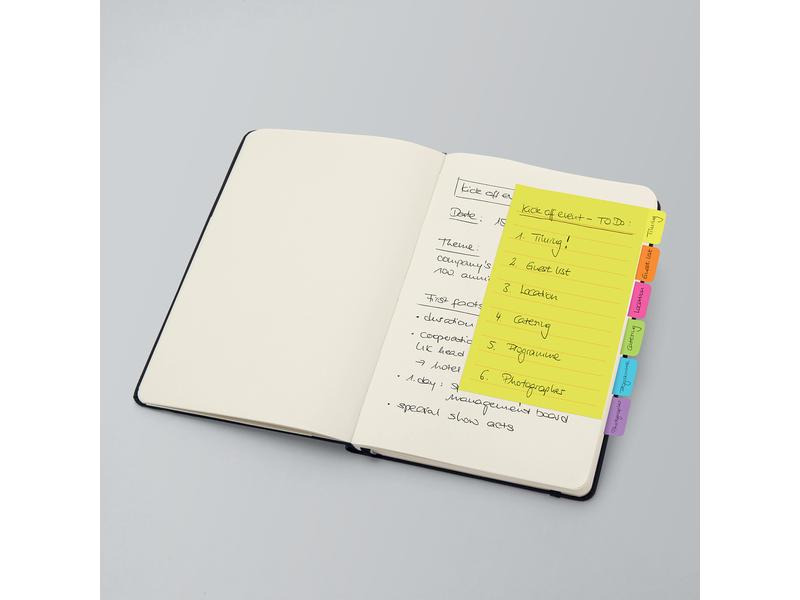 Kick off ev
Date: 15
Theme:
company's
100 anni
First facts
• duration
• cooperatio
UK head
→ hotel
• 1.day: s
management board
• special show acts
Kick off event - TO DO:
1. Timing!
2. Guest list
3. Location
4 Catering
5. Programme
6. Photographer
Timing
Guest list
Location
Catering
Programme
Photographer